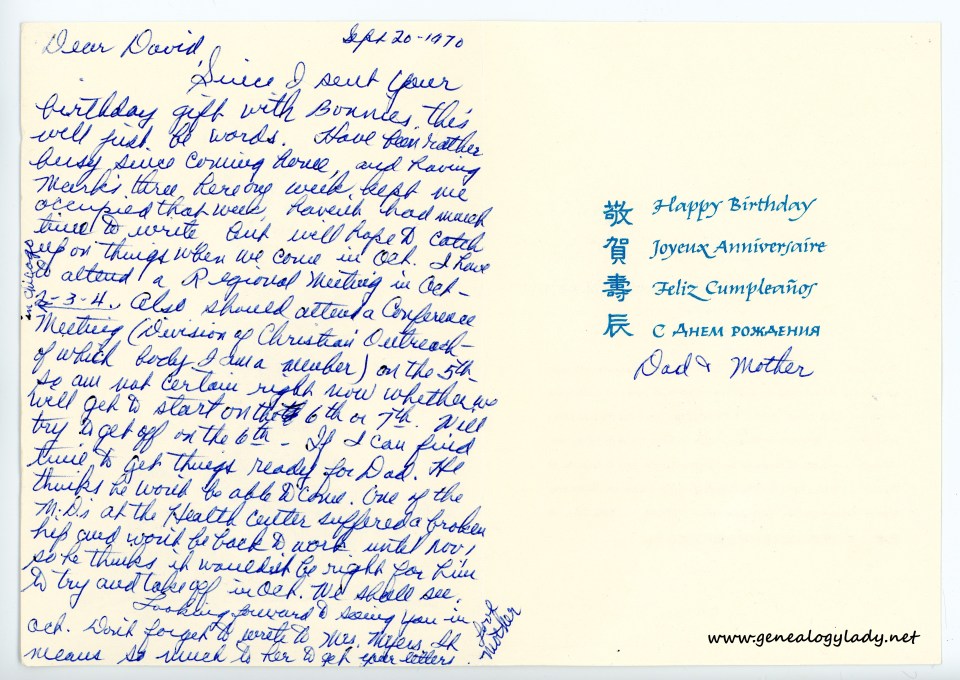 Sept 20-1970
Dear David,
Since I sent your
birthday gift with Bonnies, this
will just be words. Have been rather
busy since coming home, and having
Mark's three here one week kept me
occupied that week, haven't had much
time to write but will hope to catch
up on things when we come in Oct. I have
to attend a Regional Meeting in Oct-
2-3-4. Also should attend a Conference
in Chicago
Meeting (Division of Christian Outreach-
of which body I am a member) on the 5th-
so am not certain right now whether we
will get to start on the 6th or 7th. Will
try to get off on the 6th - If I can find
time to get things ready for Dad. He
thinks he won't be able to come. One of the
M.D.s at the Health Center suffered a broken
hip and won't be back to work until Nov,
so he thinks it wouldn't be right for him
to try and take off in Oct. We shall see.
Looking forward to seeing you in
Oct. Don't forget to write to Mrs. Myers. It
means so much to her to get your letters.
Love
Mother
敬賀壽辰
Happy Birthday
Joyeux Anniversaire
Feliz Cumpleaños
С Днем рождения
Dad & Mother
www.genealogylady.net